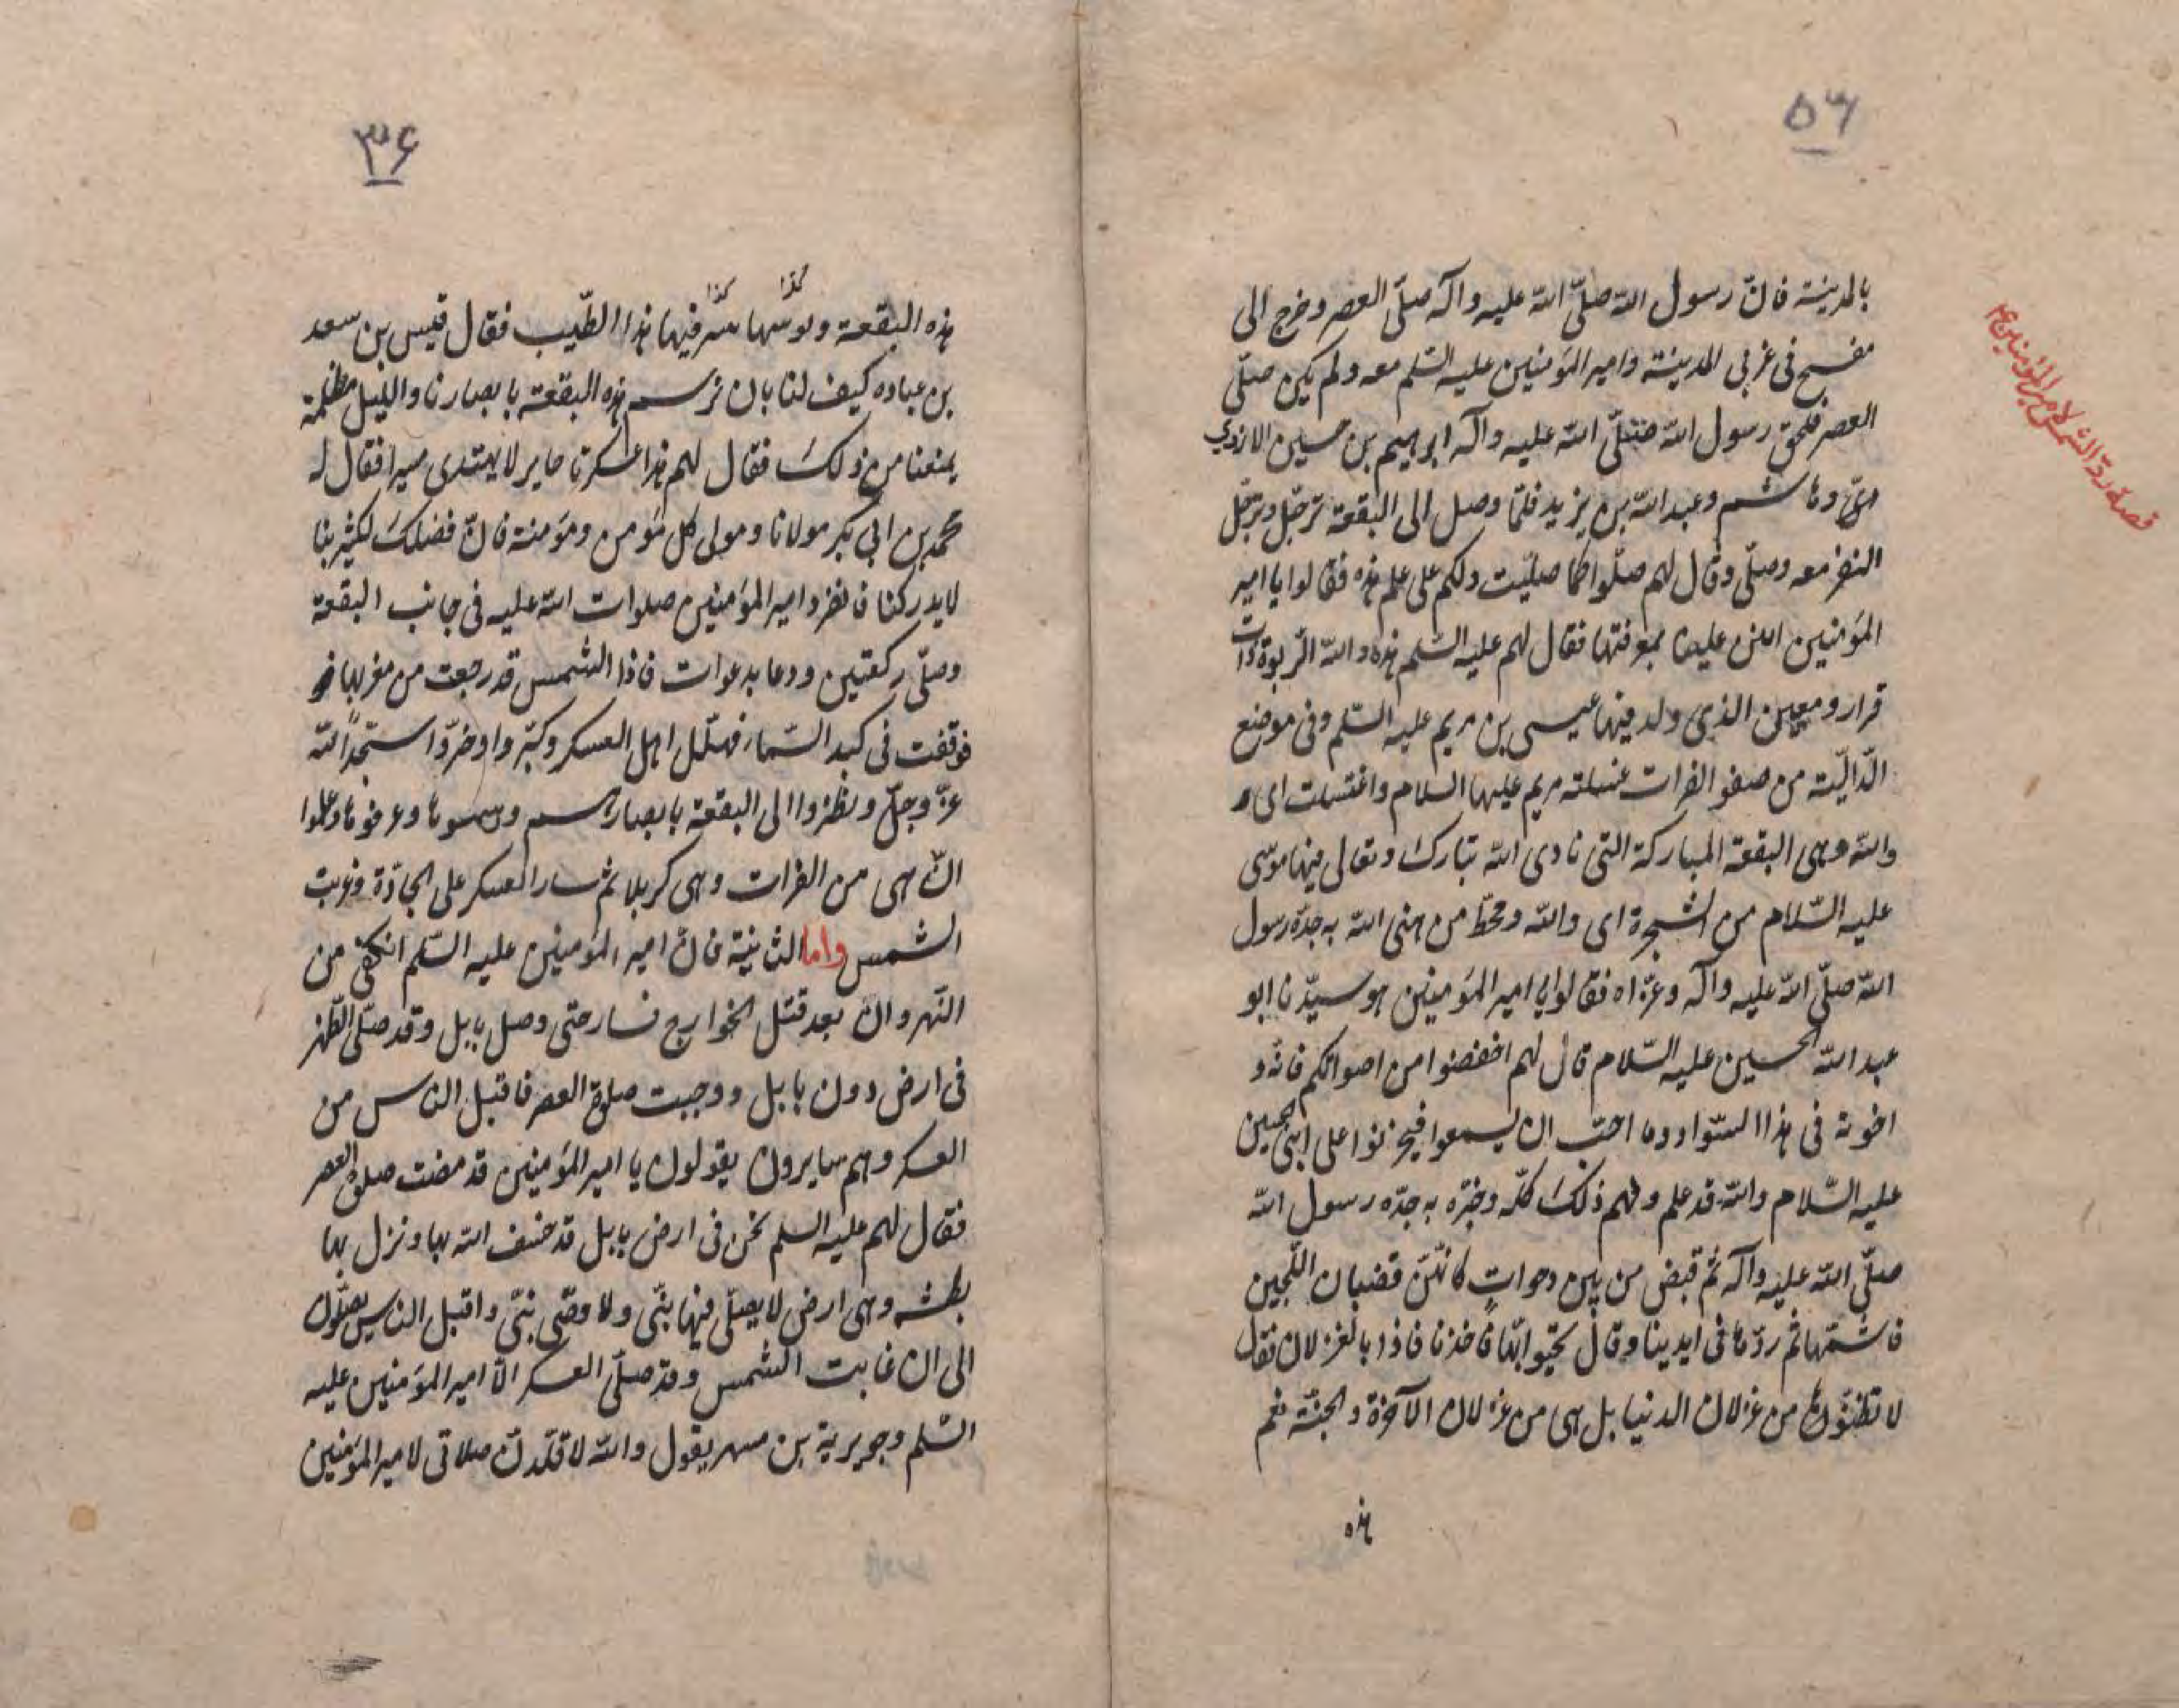 ٥٦
قصة ردّ الشمس لامير المؤمنين ع
بالمدينة فانّ رسول الله صلّى الله عليه وآله صلّى العصر وخرج الى
مفسح فى غربى المدينة وامير المؤمنين عليه السّلم معه ولم يكن صلّى
العصر فلحق رسول الله صلّى الله عليه وآله ابرهيم بن حسين الازدى
وهاشم وعبد الله بن يزيد فلمّا وصل الى البقعة ترجّل وترجّل
النفر معه وصلّى وقال لهم صلّوا كما صليت ولكم على علم هذه فقالوا يا امير
المؤمنين امنن علينا بمعرفتها فقال لهم عليه السّلم هذه والله الربوة ذات
قرار ومعين الذى ولد فيها عيسى بن مريم عليه السّلم وفى موضع
الدّاليّة من صفو الفرات غسلته مريم عليها السلام واغتسلت اى و
والله وهى البقعة المباركة التى نادى الله تبارك وتعالى فيها موسى
عليه السّلام من الشجرة اى والله ومحطّ من هنى الله به جدّه رسول
الله صلّى الله عليه وآله وعزّاه فقالوا يا امير المؤمنين هو سيّدنا ابو
عبد الله الحسين عليه السّلام قال لهم اخفضوا من اصواتكم فانّه و
اخوته فى هذا السّواد وما احبّ ان يسمعوا فيحزنوا على ابنى الحسين
عليه السّلام والله قد علم وفهم ذلك كلّه وخبّره به جدّه رسول الله
صلّى الله عليه وآله ثم قبض من بين دوحات كانّهن قضبان اللّجين
فاشتمّها ثم ردّها فى ايدينا وقال تحيّوا بها فاخذنا فاذا بالغزلان فقال
لا تظنّوها من غزلان الدنيا بل هى من غزلان الآخرة والجنّة نعم
هذه
٣٦
كذا كذا
هذه البقعة ويونسها سر فيها هذا الطّيب فقال قيس بن سعد
بن عباده كيف لنا بان نرسم هذه البقعة بابصارنا والليل مظلمة
يمنعنا من ذلك فقال لهم هذا عسكرنا حاير لا يهتدى مسيرا فقال له
محمد بن ابى بكر مولانا ومولى كل مؤمن ومؤمنة فانّ فضلك لكثير بنا
لا يدركنا فانفرد امير المؤمنين صلوات الله عليه فى جانب البقعة
وصلّى ركعتين ودعا بدعوات فاذا الشمس قد رجعت من مغربها فو
فوقفت فى كبد السّماء فهلّل اهل العسكر وكبّروا وخرّوا سجّدا لله
عزّ وجلّ ونظروا الى البقعة بابصارهم ورسموها وعرفوها وعلموا
انّ هى من الفرات وهى كربلا ثم سار العسكر على الجادّة وغربت
الشمس واما الثانية فان امير المؤمنين عليه السّلم انكفى من
النّهروان بعد قتل الخوارج فسار حتى وصل بابل وقد صلّى الظّهر
فى ارض دون بابل ووجبت صلوة العصر فاقبل الناس من
العسكر وهم سايرون يقولون يا امير المؤمنين قد مضت صلوة العصر
فقال لهم عليه السلم نحن فى ارض بابل قد خسف الله بها ونزل بها
بطشه وهى ارض لا يصلّى فيها نبّى ولا وصّى نبّى واقبل الناس يصلّون
الى ان غابت الشمس وقد صلّى العسكر الّا امير المؤمنين عليه
السّلم وجويرية بن مسهر يقول والله لا قلّدنّ صلاتى لامير المؤمنين